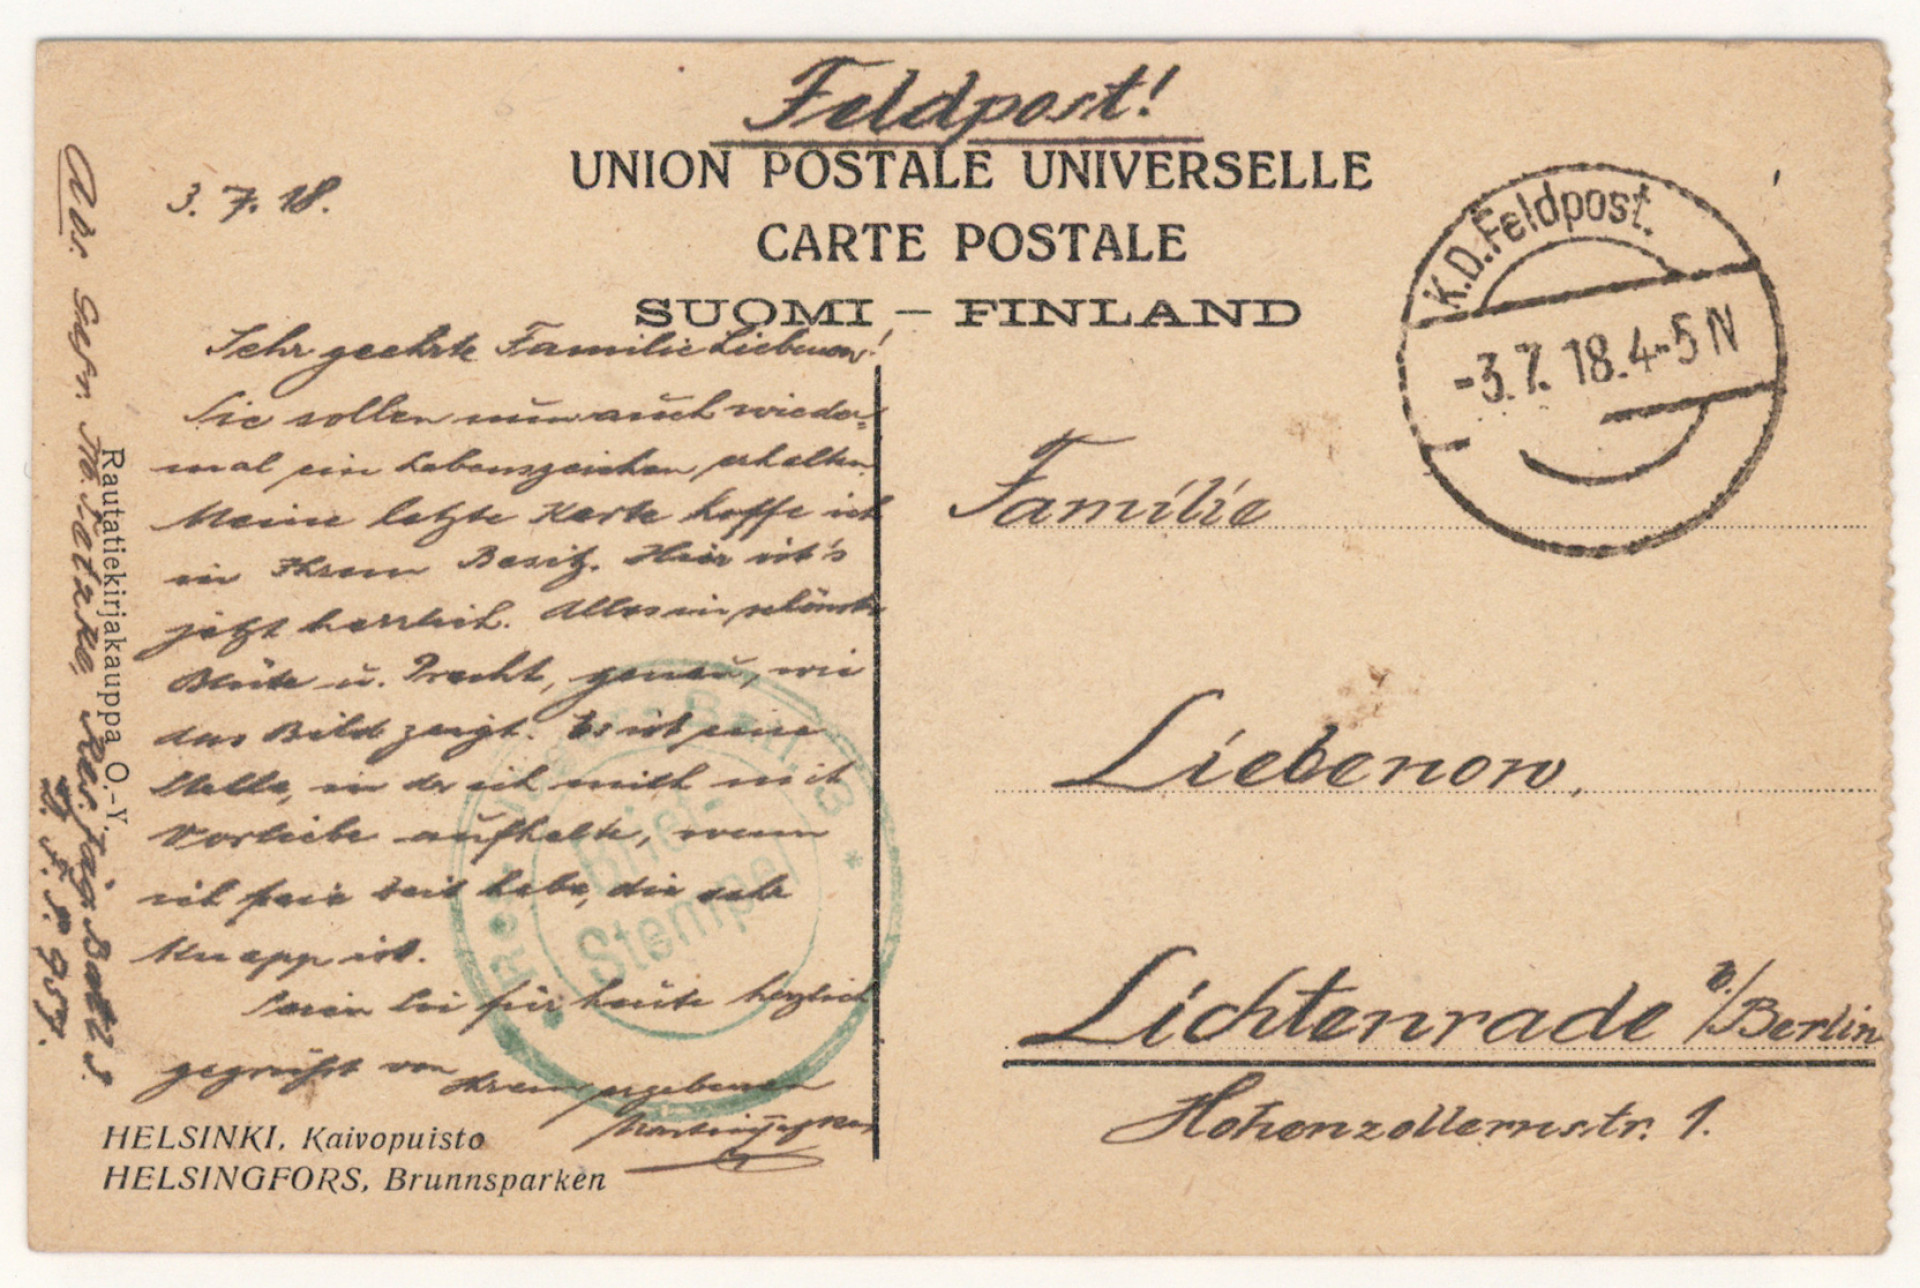 Feldpost!
UNION POSTALE UNIVERSELLE
CARTE POSTALE
SUOMI – FINLAND
K.D. Feldpost.
-3.7.18.4-5N
3. 7. 18.
Sehr geehrte Familie Liebenow!
Sie sollen nun auch wieder=
mal ein Lebenszeichen erhalten.
Meine letzte Karte hoffe ich
in Ihrem Besitz. Hier ist's
jetzt herrlich. Alles in schönster
Blüte u. Pracht, genau, wie
das Bild zeigt. Es ist eine
Stelle, in der ich mich mit
Vorliebe aufhalte, wenn
ich freie Zeit habe, die sehr
knapp ist.
Seien Sie für heute herzlich
gegrüßt von
Ihrem ergebenen
Abs. Gefr. Res. Jäg. Batl.
D. F. P. 957.
Rautatiekirjakauppa O.-Y.
Brief-
Stempel
HELSINKI, Kaivopuisto
HELSINGFORS, Brunnsparken
Familie
Liebenow,
Lichtenrade b./Berlin
Hohenzollernstr. 1.